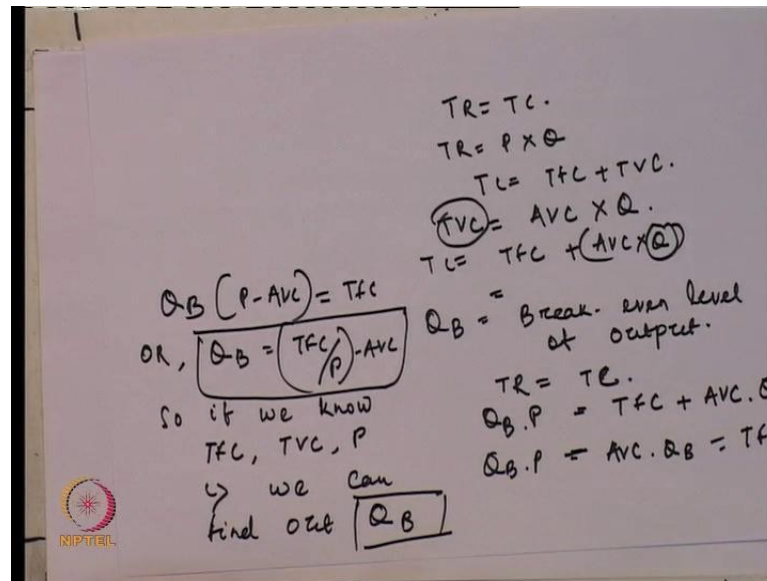 TR = TC.
TR = P X Q
TC = TFC + TVC.
TVC = AVC X Q.
TC = TFC + (AVC X Q)
QB = Break-even level
of output.
TR = TC.
QB.P = TFC + AVC.Q
QB.P = AVC.QB = TF
QB (P-AVC) = TFC
OR, QB = (TFC/P) - AVC
So if we know
TFC, TVC, P
↳ we can
find out QB
NPTEL